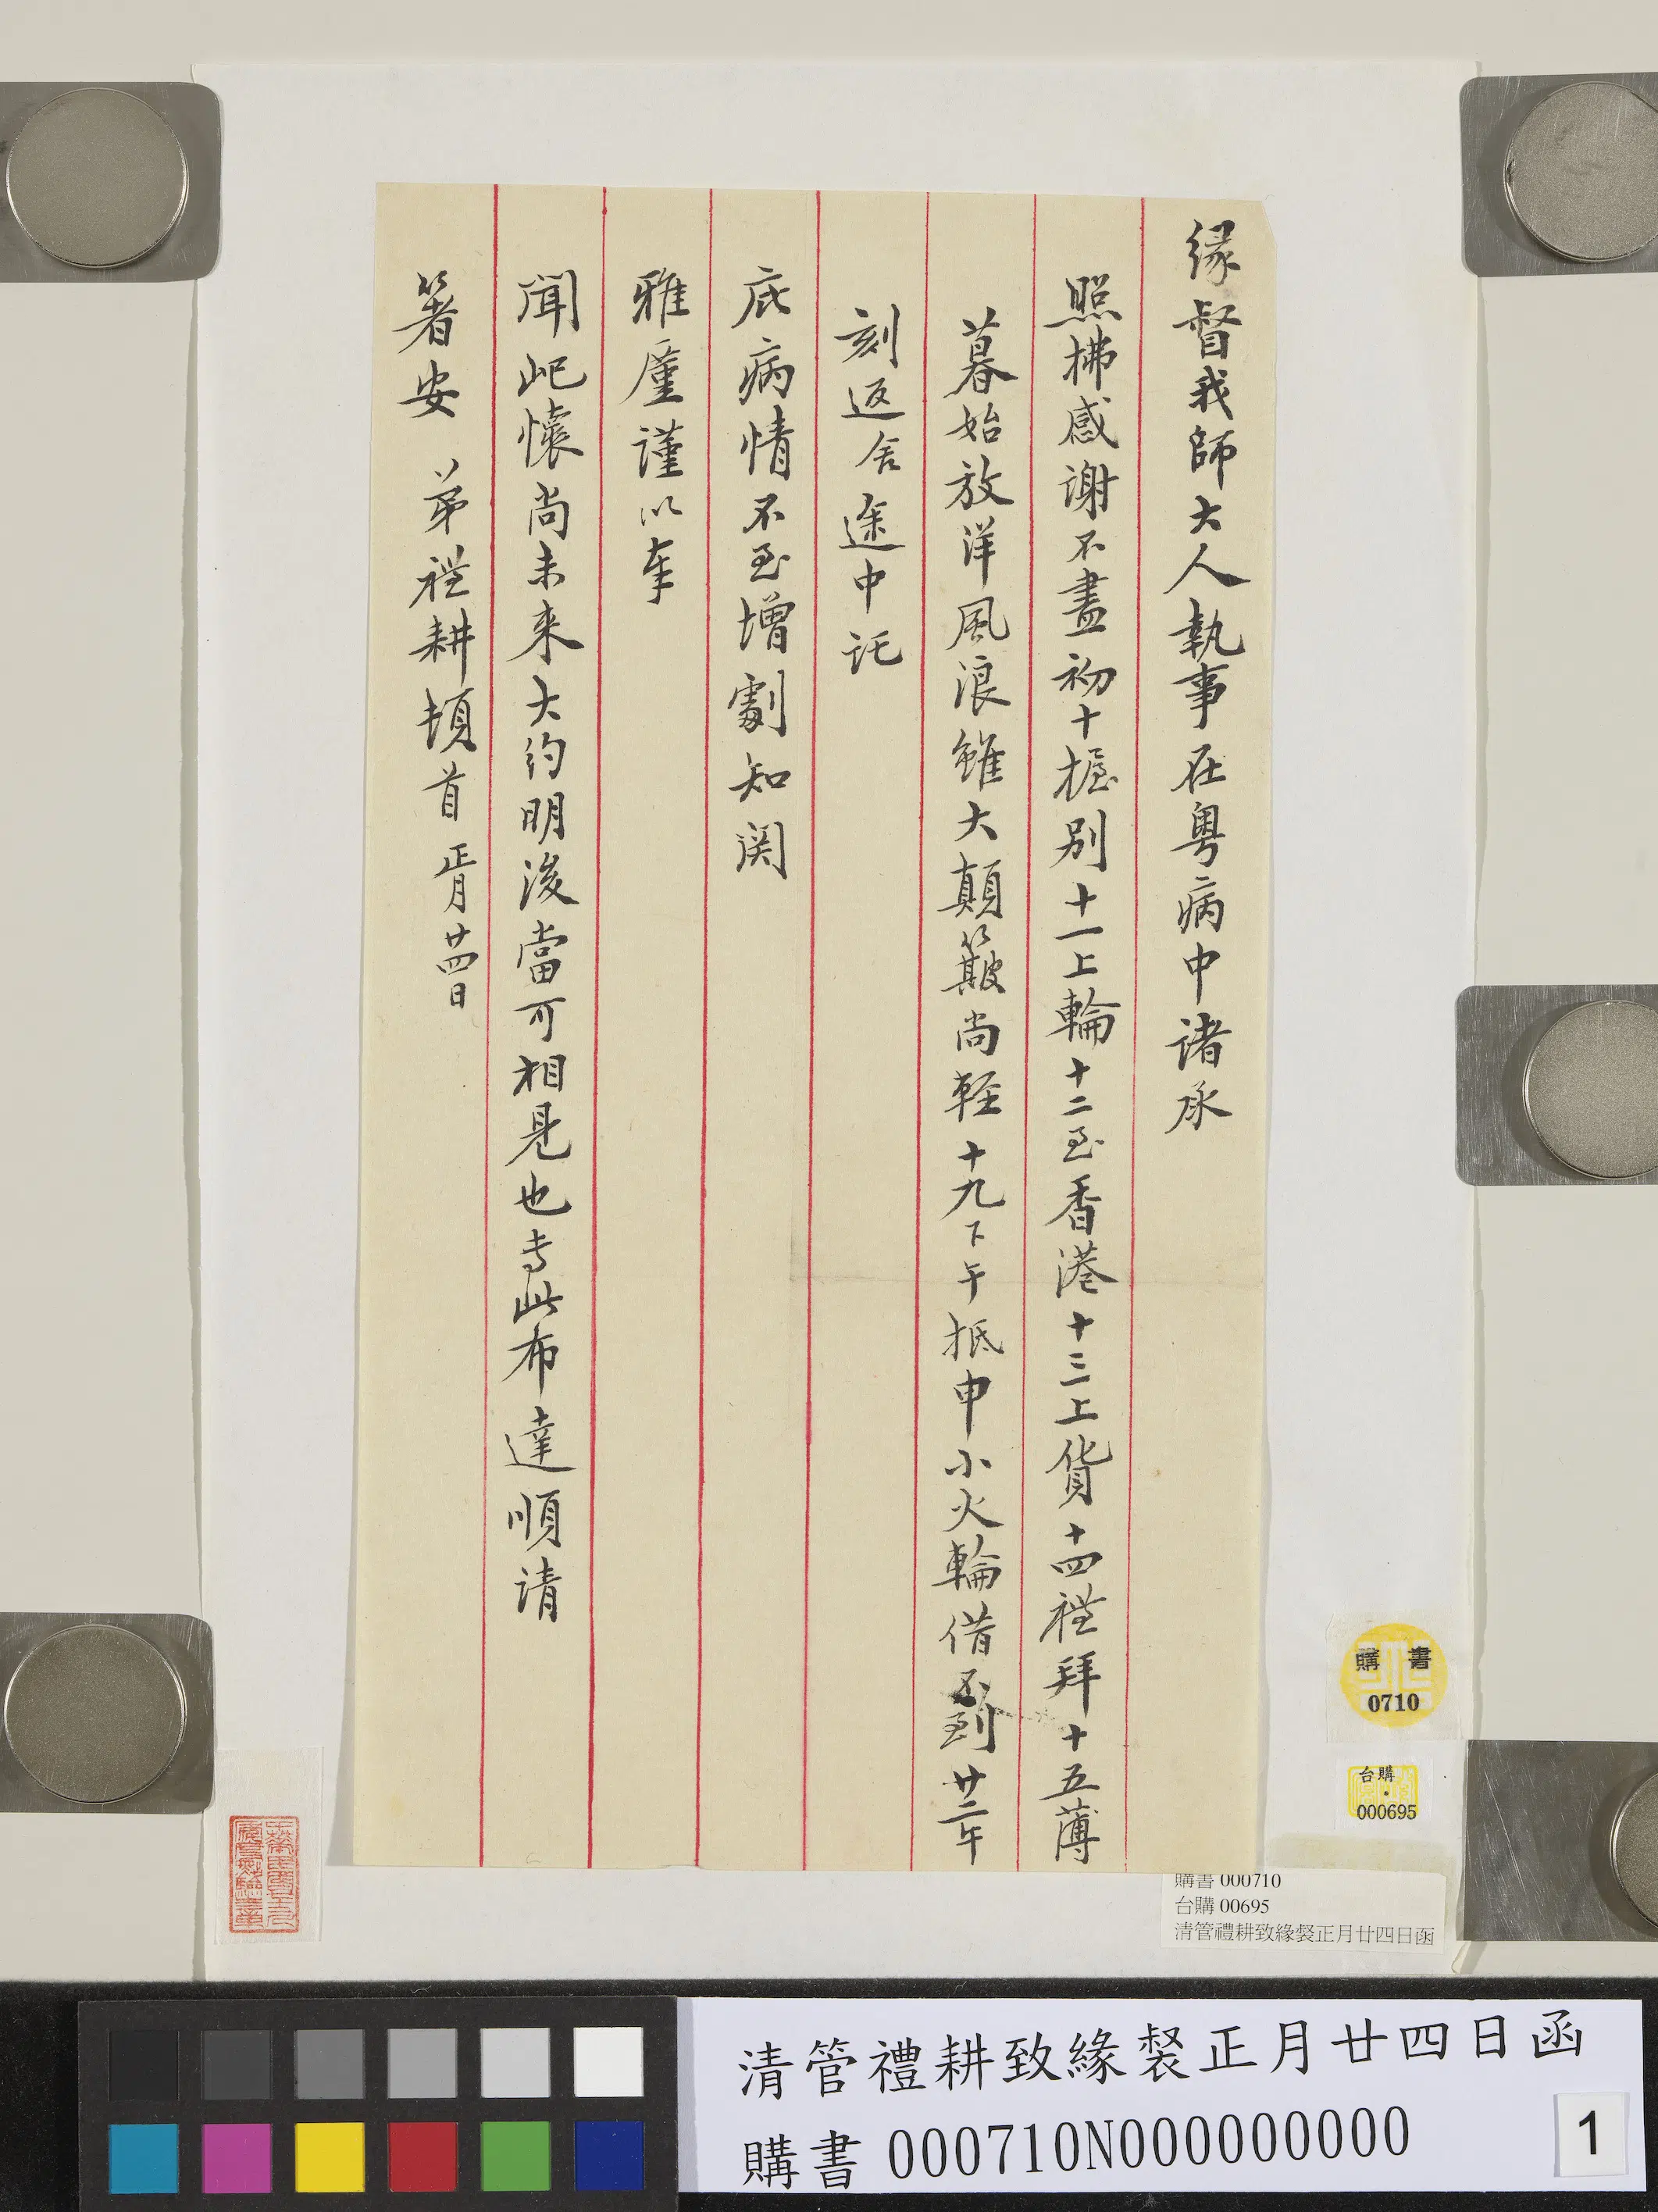 緣督我師大人執事在粵病中諸承
照拂感謝不盡初十握別十一上輪十二至香港十三上貨十四禮拜十五薄
暮始放洋風浪雖大顛簸尚輕十九下午抵申小火輪借不到廿二午
刻返舍途中託
庇病情不至增劇知関
雅廑謹以奉
聞屺懷尚未來大約明後當可相見也專此布達順請
箸安 弟禮耕頓首 正月廿四日
購書
0710
台購
000695
購書 000710
台購 00695
清管禮耕致緣督正月廿四日函
清管禮耕致緣督正月廿四日函
購書 000710N000000000
1